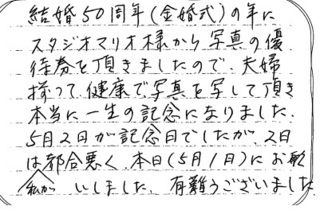 結婚50周年(金婚式)の年に
スタジオマリオ様から写真の優
待券を頂きましたので、夫婦
揃って、健康で写真を写して頂き
本当に一生の記念になりました。
5月2日が記念日でしたが、2日
は都合悪く、本日(5月1日)にお願
私が いしました。有難うございました